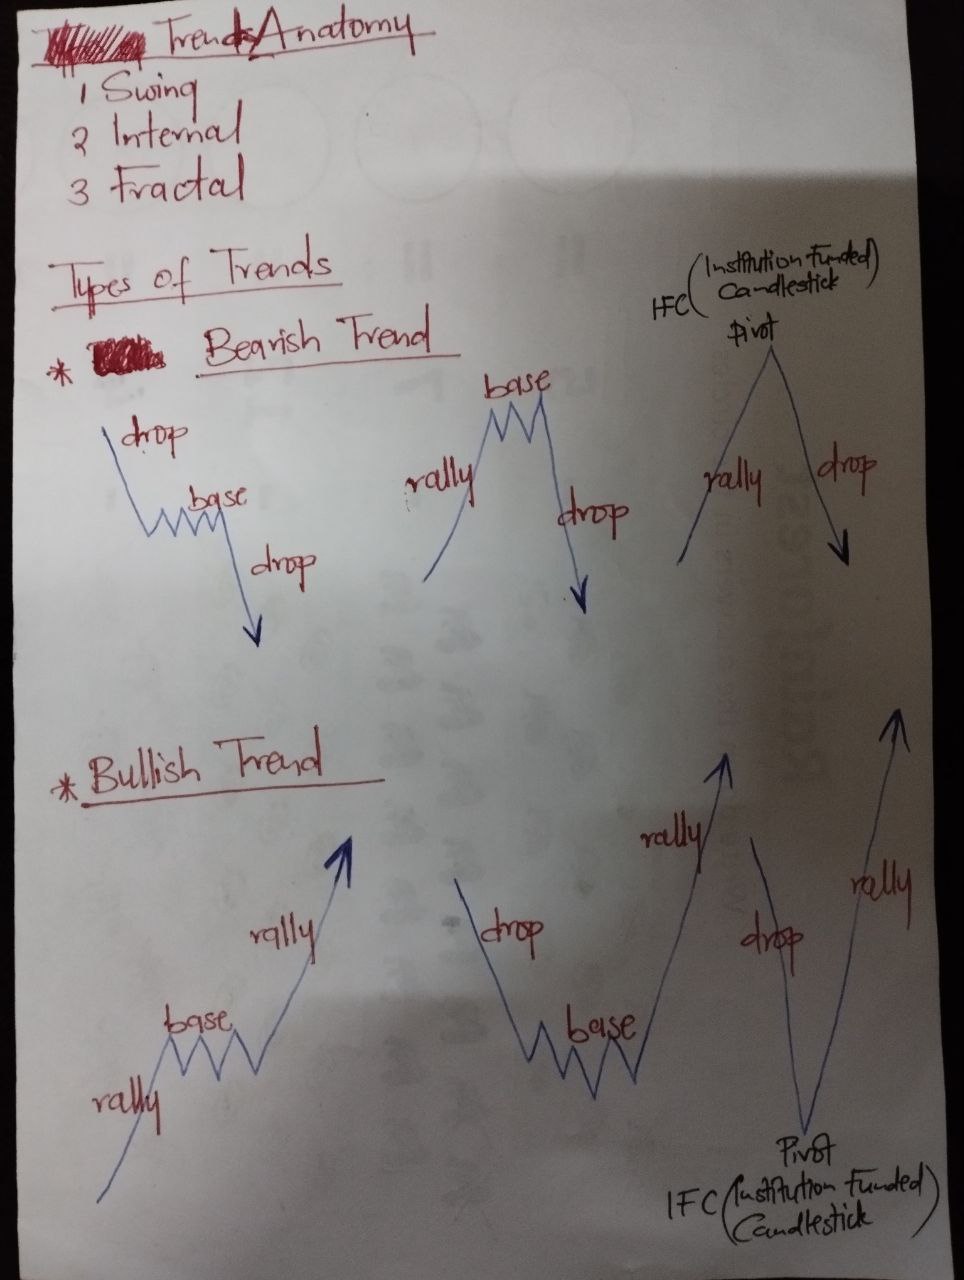 Trends Anatomy
1 Swing
2 Internal
3 Fractal
Types of Trends
* Bearish Trend
drop
base
drop
base
rally
drop
IFC (Institution Funded)
Candlestick
Pivot
rally
drop
* Bullish Trend
rally
base
rally
drop
base
rally
drop
rally
Pivot
IFC (Institution Funded)
Candlestick